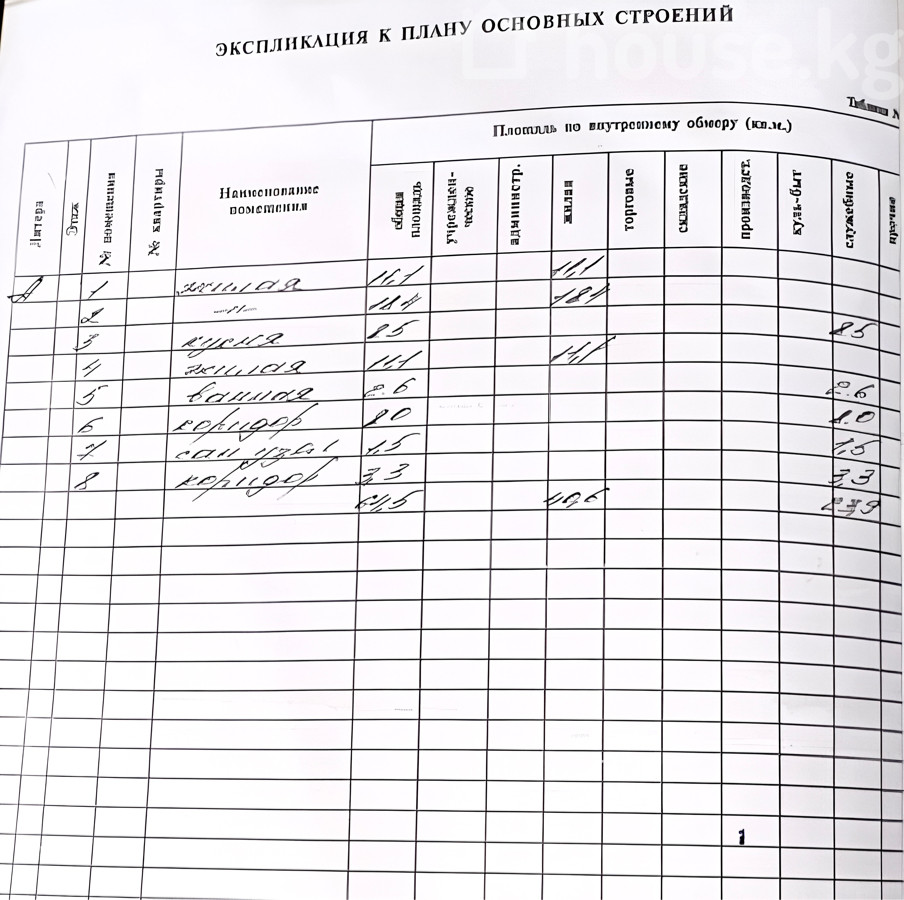 house.kg
ЭКСПЛИКАЦИЯ К ПЛАНУ ОСНОВНЫХ СТРОЕНИЙ
Площадь по внутреннему обмеру (кв.м.)
Литера Этаж № помещения № квартиры Наименование помещения общая площадь администр. жилая торговые складские производст. куль-быт служебные
А 1 жилая 11,1 11,1
2 —"— 18.4 18.4
3 кухня 8.5 8.5
4 жилая 11,1 11,1
5 ванная 2.6 2.6
6 коридор 8.0 8.0
7 сан узел 1,5 1,5
8 коридор 3,3 3,3
64,5 40,6